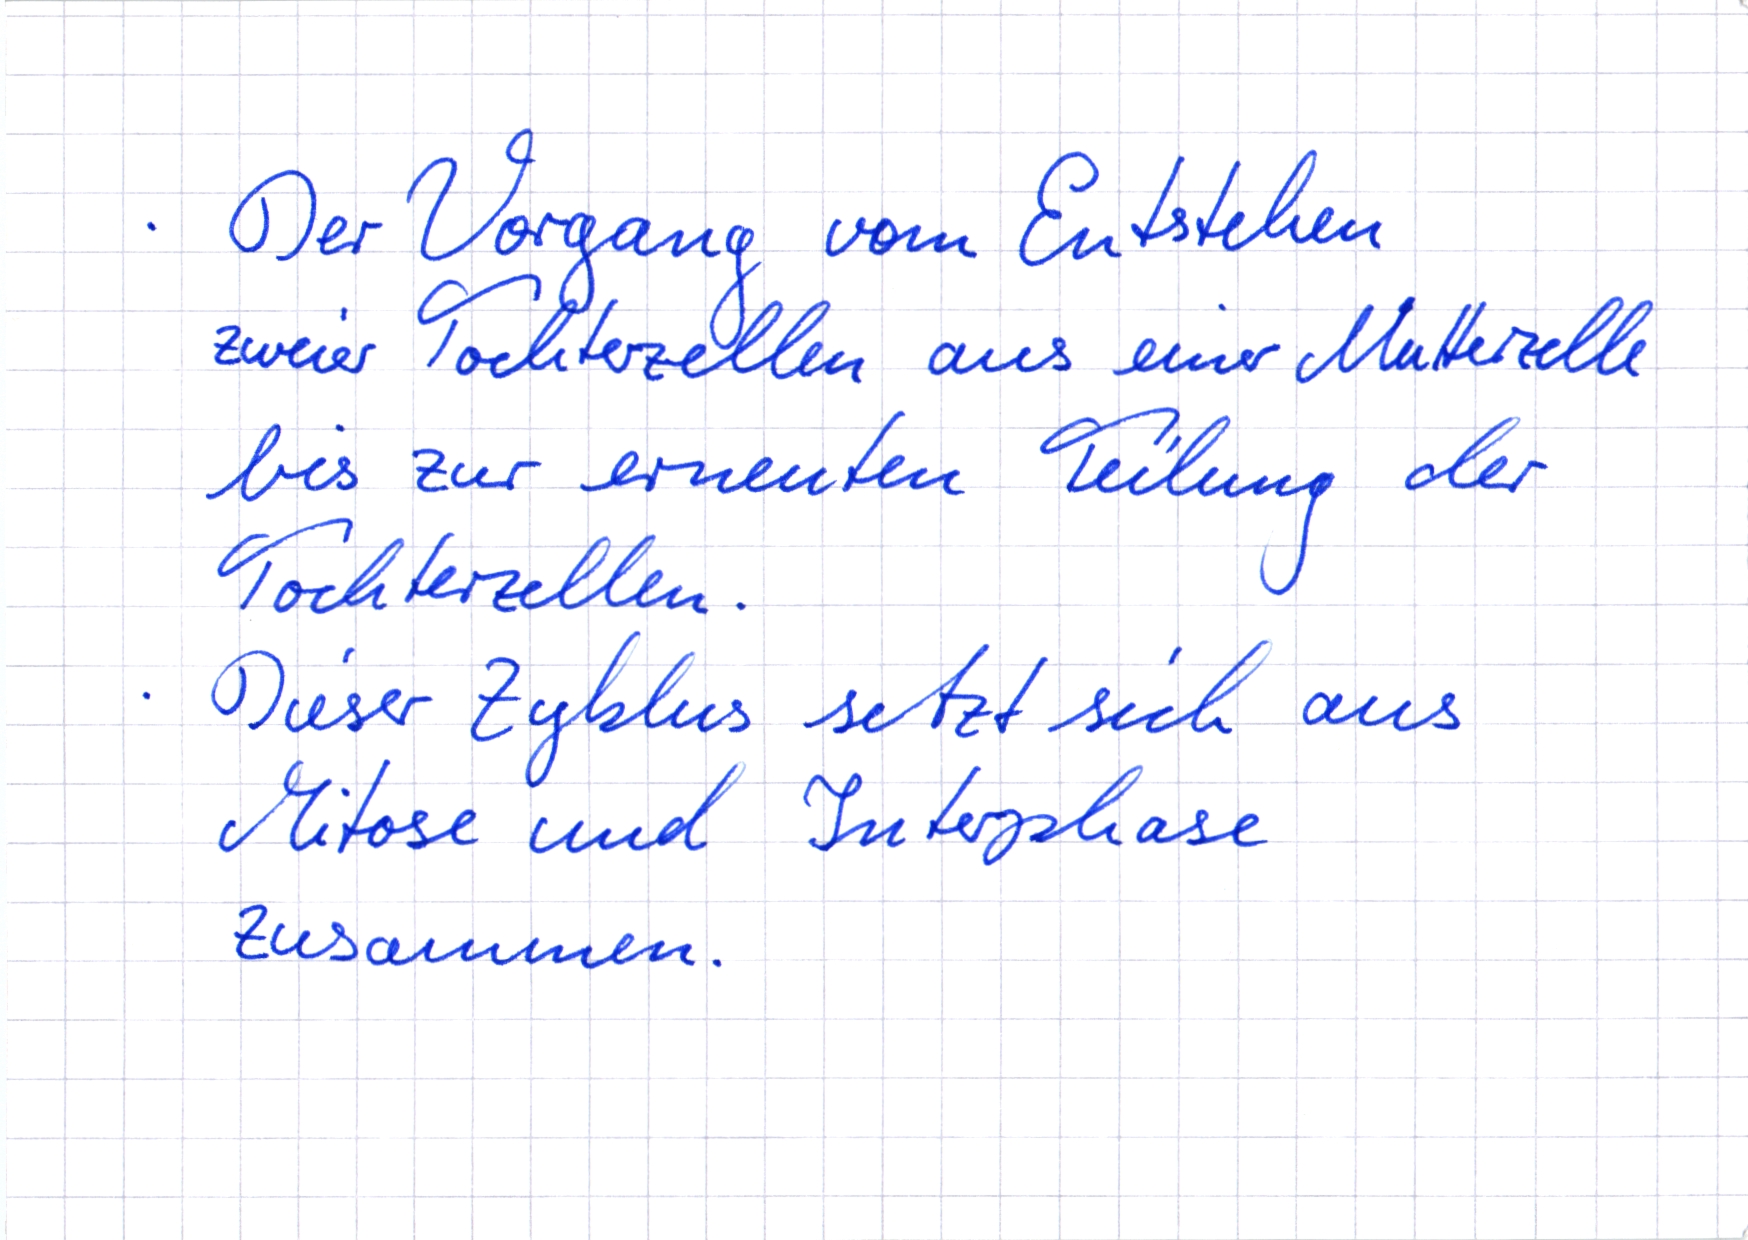 · Der Vorgang vom Entstehen
zweier Tochterzellen aus einer Mutterzelle
bis zur erneuten Teilung der
Tochterzellen.
· Dieser Zyklus setzt sich aus
Mitose und Interphase
zusammen.